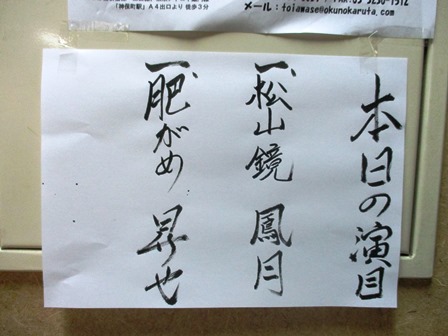 「神保町駅」A4出口より 徒歩3分
メール：toiawase@okunokaruta.com
本日の演目
一、松山鏡 鳳月
一、肥がめ 昇也